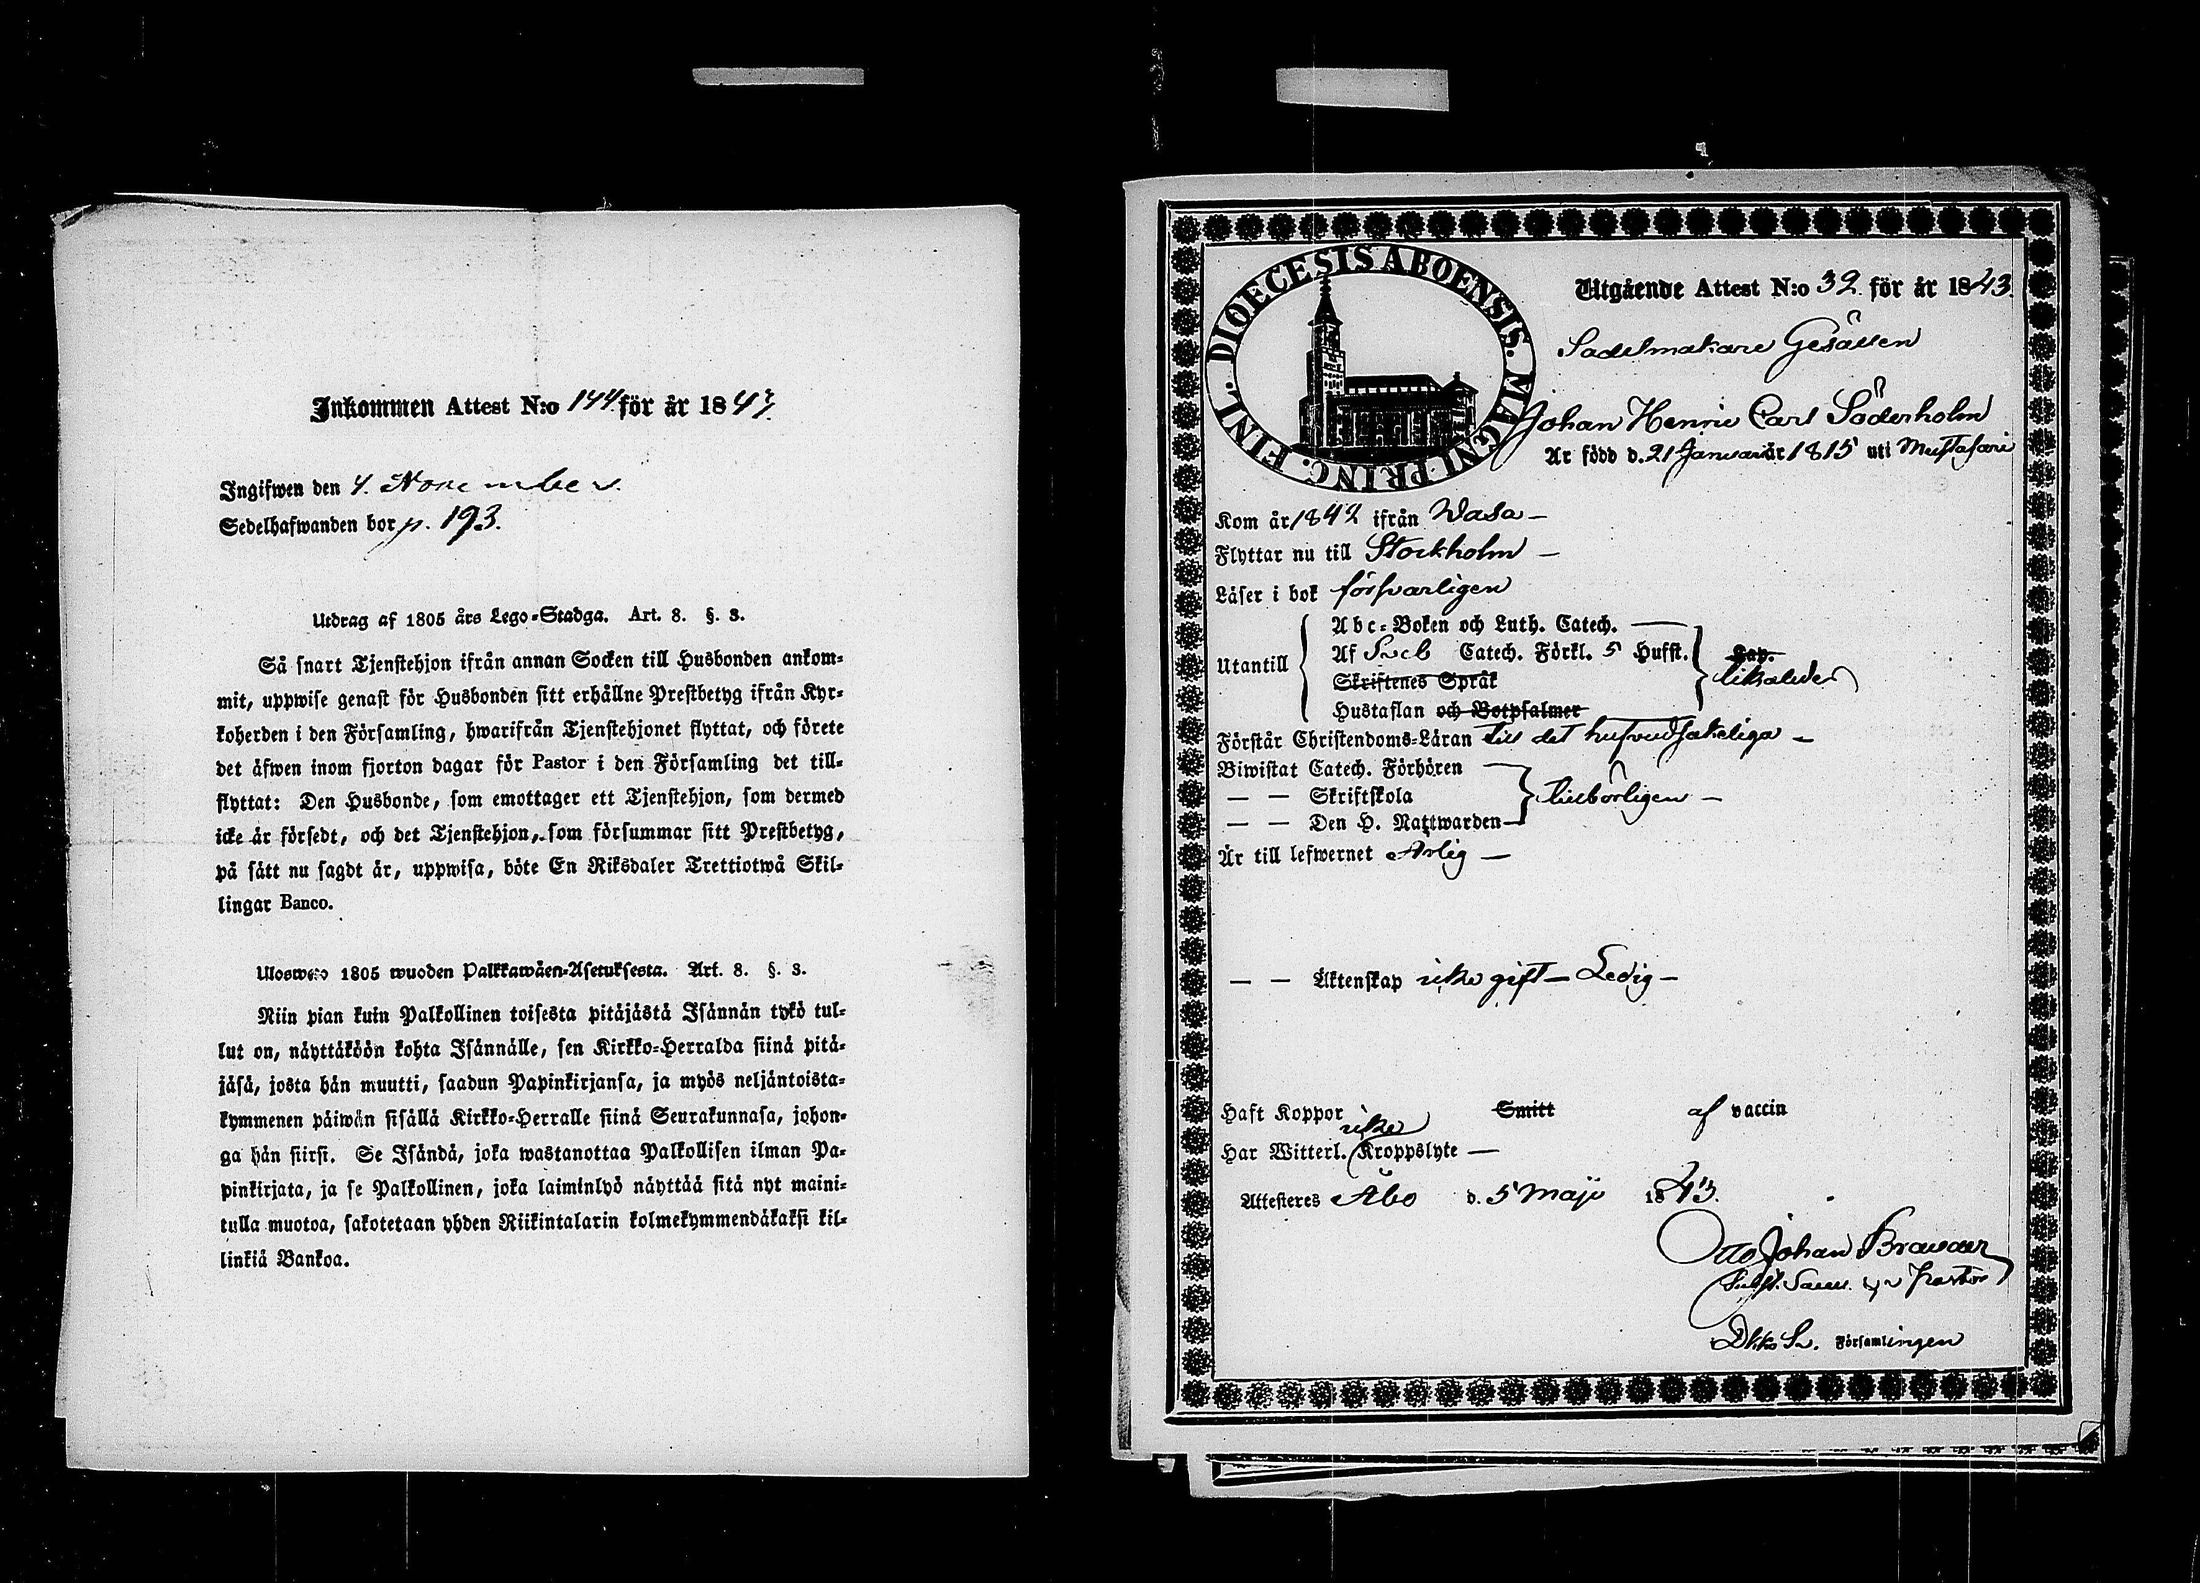 Inkommen Attest N:o 144 för år 1847.
Ingifwen den 4. November.
Sedelhafwanden bor p. 193.
Utdrag af 1805 års Lego-Stadga. Art. 8. §. 3.
Så snart Tjenstehjon ifrån annan Socken till Husbonden ankom-
mit, uppwise genast för Husbonden sitt erhållne Prestbetyg ifrån Kyr-
koherden i den Församling, hwarifrån Tjenstehjonet flyttat, och förete
det äfwen inom fjorton dagar för Pastor i den Församling det till-
flyttat: Den Husbonde, som emottager ett Tjenstehjon, som dermed
icke är försedt, och det Tjenstehjon, som försummar sitt Prestbetyg,
på sätt nu sagdt är, uppwisa, böte En Riksdaler Trettiotwå Skil-
lingar Banco.
Ulosweto 1805 wuoden Palkkawäen-Asetuksesta. Art. 8. §. 3.
Niin pian kuin Palkollinen toisesta pitäjästä Isännän tykö tul-
lut on, näyttäköön kohta Isännälle, sen Kirkko-Herralda siinä pitä-
jäsä, josta hän muutti, saadun Papinkirjansa, ja myös neljäntoista-
kymmenen päiwän sisällä Kirkko-Herralle siinä Seurakunnasa, johon-
ga hän siirsi. Se Isändä, joka wastanottaa Palkollisen ilman Pa-
pinkirjata, ja se Palkollinen, joka laiminlyö näyttää sitä nyt maini-
tulla muotoa, sakotetaan yhden Riikintalarin kolmekymmendäkaksi kil-
linkiä Bankoa.
DIOECESIS ABOENSIS. MAGNI PRINC. FINL.
Utgående Attest N:o 32 för år 1843.
Sadelmakare Gesällen
Johan Henric Carl Söderholm
Är född d. 21 Januari år 1815 uti Mustasari
Kom år 1842 ifrån Wasa —
Flyttar nu till Stockholm —
Läser i bok försvarligen
Utantill
Abc-Boken och Luth. Catech. —
Af Sveb Catech. Förkl. 5 Hufst.
Skriftenes Språk
Hustaflan och Botpsalmer
Lap.
likaledes
Förstår Christendoms-Läran till det hufvudsakeliga —
Biwistat Catech. Förhören —
— — Skriftskola
— — Den H. Nattwarden —
tillbörligen —
Är till lefwernet Ärlig —
— — Äktenskap icke gift — Ledig —
Haft Koppor Smitt af vaccin
Har Witterl. icke Kroppslyte —
Attesteres Åbo d. 5 Maji 1843.
Otto Johan Brander
Pastor
Sv. Församlingen